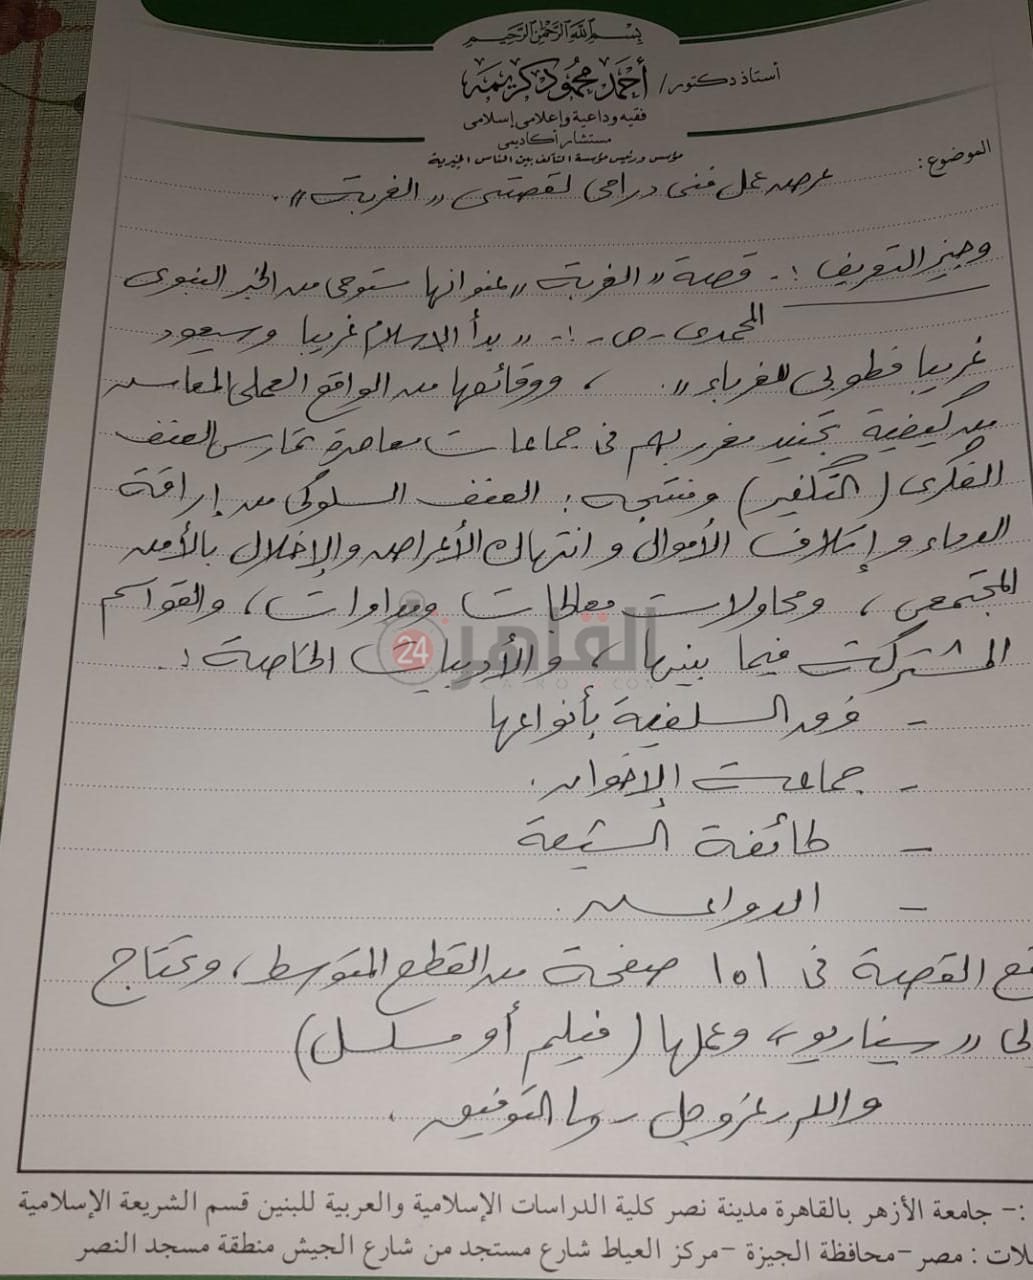 بسم الله الرحمن الرحيم
أستاذ دكتور/ أحمد محمود كريمه
فقيه وداعية وإعلامي إسلامي
مستشار أكاديمي
مؤسس ورئيس مؤسسة التآلف بين الناس الخيرية
الموضوع: عرض عمل فني درامي لقصتي "الغربة".
وجيز التعريف :- قصة "الغربة" عنوانها مستوحى من الخبر النبوى
المحمدى - ص - :- "بدأ الإسلام غريبا وسيعود
غريبا فطوبى للغرباء"، ووقائعها من الواقع العملى المعاش
من كيفية تجنيد مغرر بهم فى جماعات معاصرة تمارس العنف
الفكرى (التكفير) ومنتجه: العنف السلوكى من إراقة
الدماء وإتلاف الأموال وانتهاك الأعراض والإخلال بالأمن
المجتمعى، ومحاولات معالجات ومداوات، والقواسم
القاهرة 24
المشتركة فيما بينها، والأدبيات الخاصة :
- فرق السلفية بأنواعها
- جماعة الإخوان.
- طائفة الشيعة
- الدواعش.
القصة فى ١٥١ صفحة من القطع المتوسط، وتحتاج
"سيناريو" وعملها (فيلم أو مسلسل)
والله - عز وجل - ولى التوفيق.
:- جامعة الأزهر بالقاهرة مدينة نصر كلية الدراسات الإسلامية والعربية للبنين قسم الشريعة الإسلامية
لات : مصر -محافظة الجيزة -مركز العياط شارع مستجد من شارع الجيش منطقة مسجد النصر